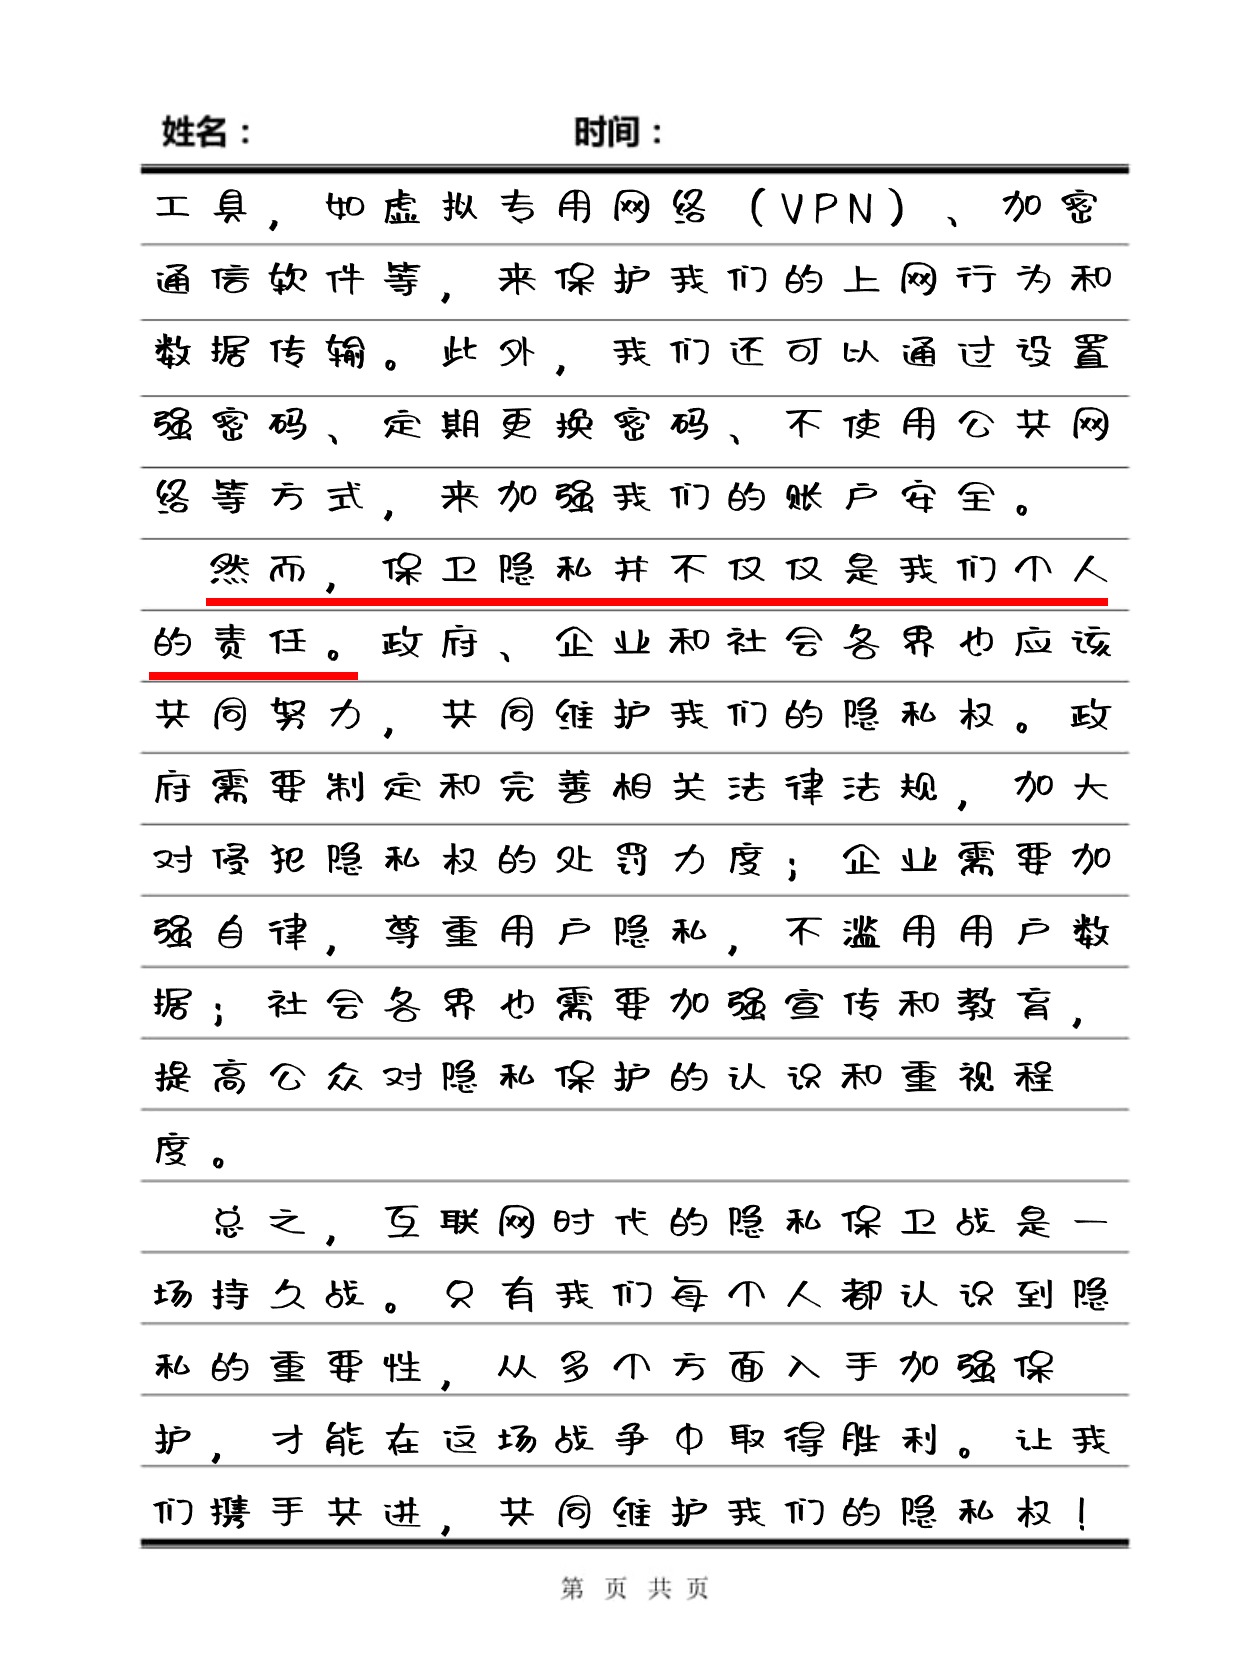 姓名： 时间：
工具，如虚拟专用网络（VPN）、加密
通信软件等，来保护我们的上网行为和
数据传输。此外，我们还可以通过设置
强密码、定期更换密码、不使用公共网
络等方式，来加强我们的账户安全。
然而，保卫隐私并不仅仅是我们个人
的责任。政府、企业和社会各界也应该
共同努力，共同维护我们的隐私权。政
府需要制定和完善相关法律法规，加大
对侵犯隐私权的处罚力度；企业需要加
强自律，尊重用户隐私，不滥用用户数
据；社会各界也需要加强宣传和教育，
提高公众对隐私保护的认识和重视程
度。
总之，互联网时代的隐私保卫战是一
场持久战。只有我们每个人都认识到隐
私的重要性，从多个方面入手加强保
护，才能在这场战争中取得胜利。让我
们携手共进，共同维护我们的隐私权！
第 页 共 页